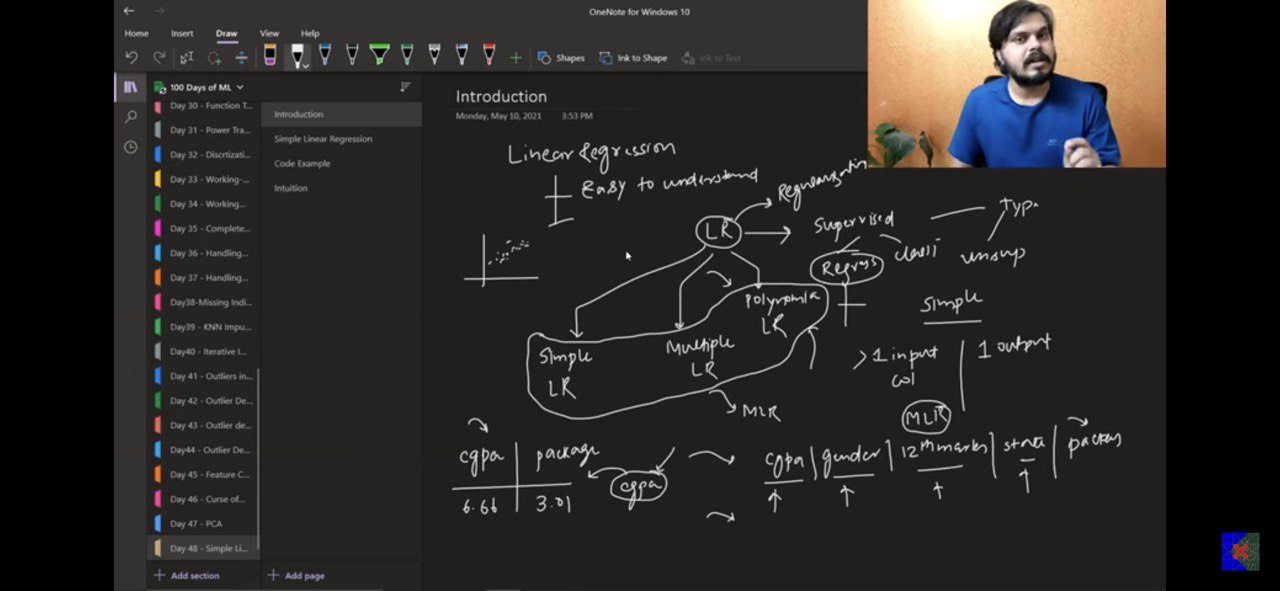 OneNote for Windows 10
Home Insert Draw View Help
Shapes Ink to Shape Ink to Text
100 Days of ML
Day 30 - Function T...
Day 31 - Power Tra...
Day 32 - Discrtizati...
Day 33 - Working-...
Day 34 - Working...
Day 35 - Complete...
Day 36 - Handling...
Day 37 - Handling...
Day38-Missing Indi...
Day39 - KNN Impu...
Day40 - Iterative I...
Day 41 - Outliers in...
Day 42 - Outlier De...
Day 43 - Outlier de...
Day44 - Outlier De...
Day 45 - Feature C...
Day 46 - Curse of...
Day 47 - PCA
Day 48 - Simple Li...
Add section
Introduction
Simple Linear Regression
Code Example
Intuition
Add page
Introduction
Monday, May 10, 2021 3:53 PM
Linear Regression
Easy to understand
Regularization
LR
Supervised
Regress
classi
unsup
Simple
LR
Multiple
LR
LR
MLR
Simple
>1 input
col
1 output
MLR
cgpa package
6.66 3.01
cgpa
cgpa gender 12th marks state